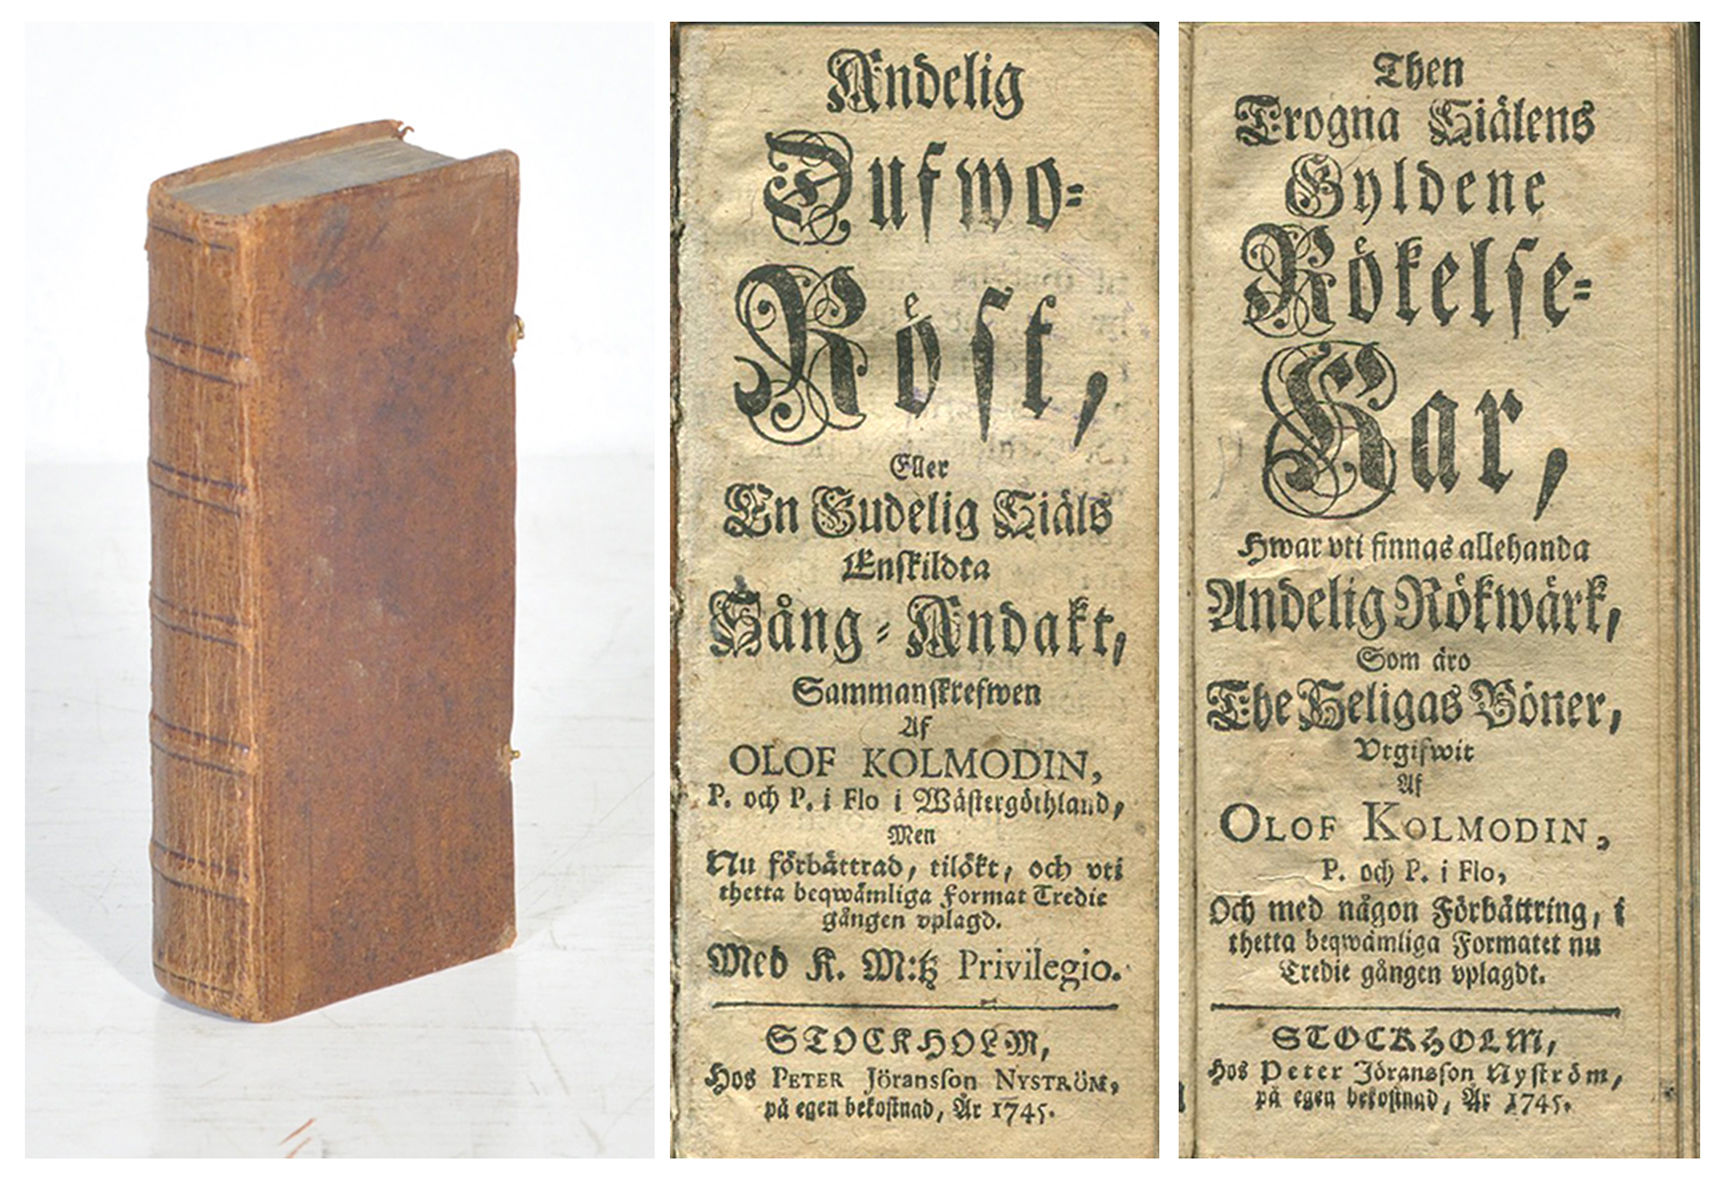 Andelig
Dufwo-
Röst,
Eller
En Gudelig Siäls
Enskildta
Sång-Andakt,
Sammanskrefwen
Af
OLOF KOLMODIN,
P. och P. i Flo i Wästergöthland,
Men
Nu förbättrad, tilökt, och vti
thetta beqwämliga Format Tredie
gången vplagd.
Med K. M:tz Privilegio.
STOCKHOLM,
Hos PETER Jöransson NYSTRÖM,
på egen bekostnad, År 1745.
Then
Trogna Siälens
Gyldene
Rökelse-
Kar,
Hwar vti finnas allehanda
Andelig Rökwärk,
Som äro
The Heligas Böner,
Vtgifwit
Af
OLOF KOLMODIN,
P. och P. i Flo,
Och med någon Förbättring, i
thetta beqwämliga Formatet nu
Tredie gången vplagdt.
STOCKHOLM,
Hos Peter Jöransson Nyström,
på egen bekostnad, År 1745.